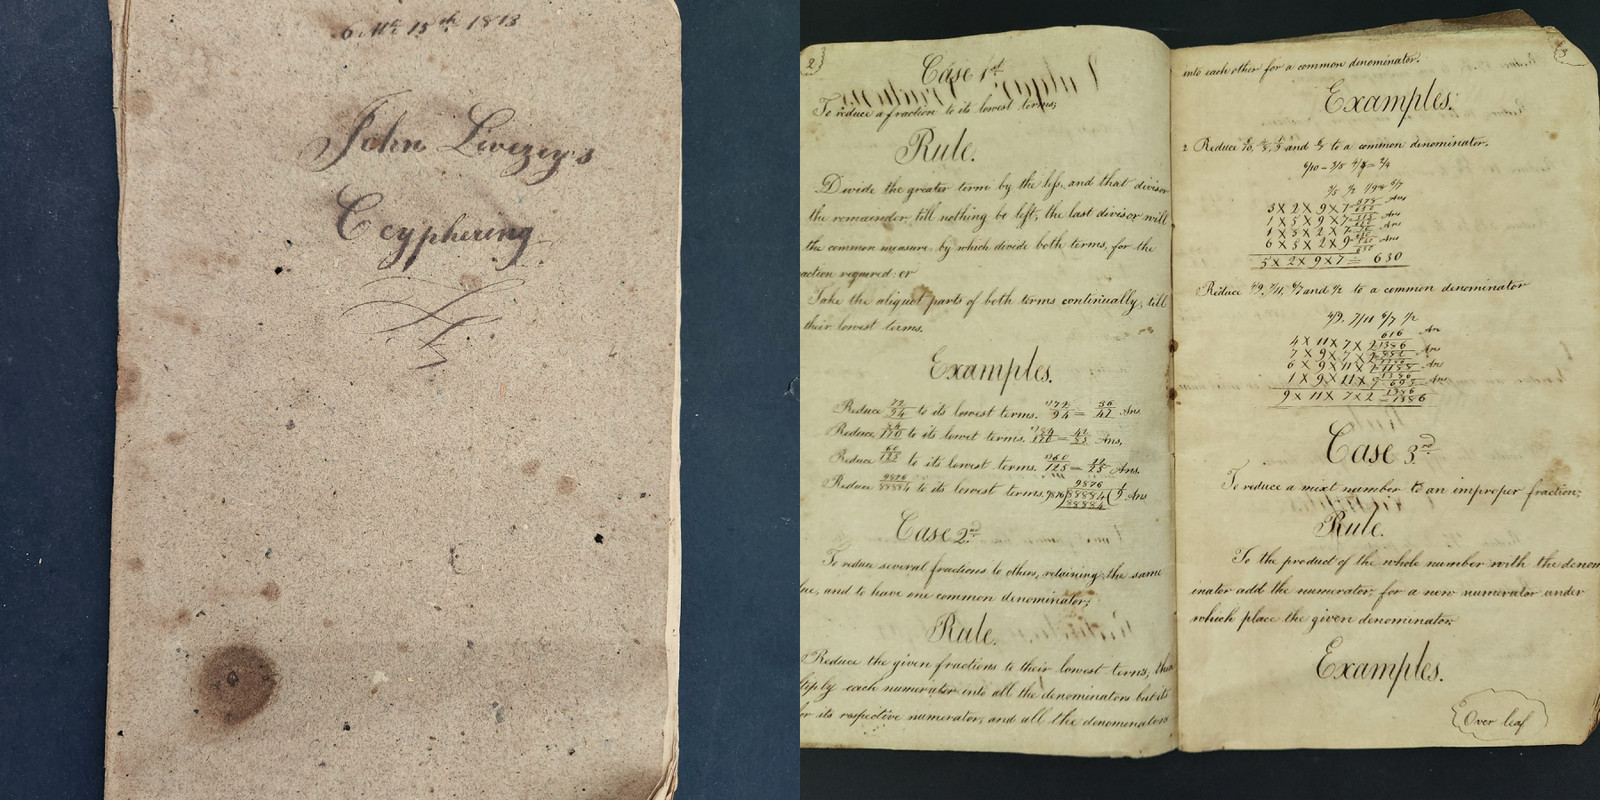 6 Mth 15th 1813
John Livezey's
Ccyphering
2
Case 1st
To reduce a fraction to its lowest terms;
Rule.
Divide the greater term by the less, and that divisor
the remainder, till nothing be left, the last divisor will
the common measure, by which divide both terms, for the
action required or
Take the aliquot parts of both terms continually, till
their lowest terms.
Examples.
Reduce 72/94 to its lowest terms. 72/94 = 36/47 Ans
Reduce 84/170 to its lowet terms. 84/170 = 42/85 Ans,
Reduce 60/125 to its lowest terms. 60/125 = 12/25 Ans.
Reduce 9876/88884 to its lowest terms. 9876/88884 (1/9 Ans
88884
Case 2nd
To reduce several fractions to others, retaining the same
ue, and to have one common denominator;
Rule.
Reduce the given fractions to their lowest terms, then
tiply each numerator into all the denominators but its
for its respective numerator, and all the denominators
3
into each other for a common denominator.
Examples.
2 Reduce and to a common denominator.
6/10 = 3/5
3/5 1/2 1/9 6/7
3 X 2 X 9 X 7 Ans
1 X 5 X 9 X 7 Ans
1 X 5 X 2 X 7 Ans
6 X 5 X 2 X 9 Ans
5 X 2 X 9 X 7 = 630
Reduce 4/9, 7/11, 6/7 and 1/2 to a common denominator
4/9, 7/11 6/7 1/2
616
4 X 11 X 7 X 2 1386 An
7 X 9 X 7 X 2 882 An
6 X 9 X 11 X 2 1188 An
1 X 9 X 11 X 7 693 An
9 X 11 X 7 X 2 = 1386
Case 3rd
To reduce a mixt number to an improper fraction;
Rule.
To the product of the whole number with the denom
inator add the numerator, for a new numerator under
which place the given denominator.
Examples.
Over leaf